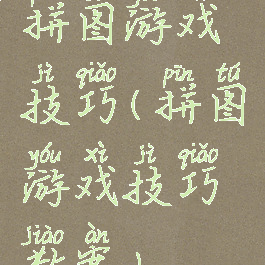 拼图游戏
jì qiǎo pīn tú
技巧(拼图
yóu xì jì qiǎo
游戏技巧
jiào àn
教案)